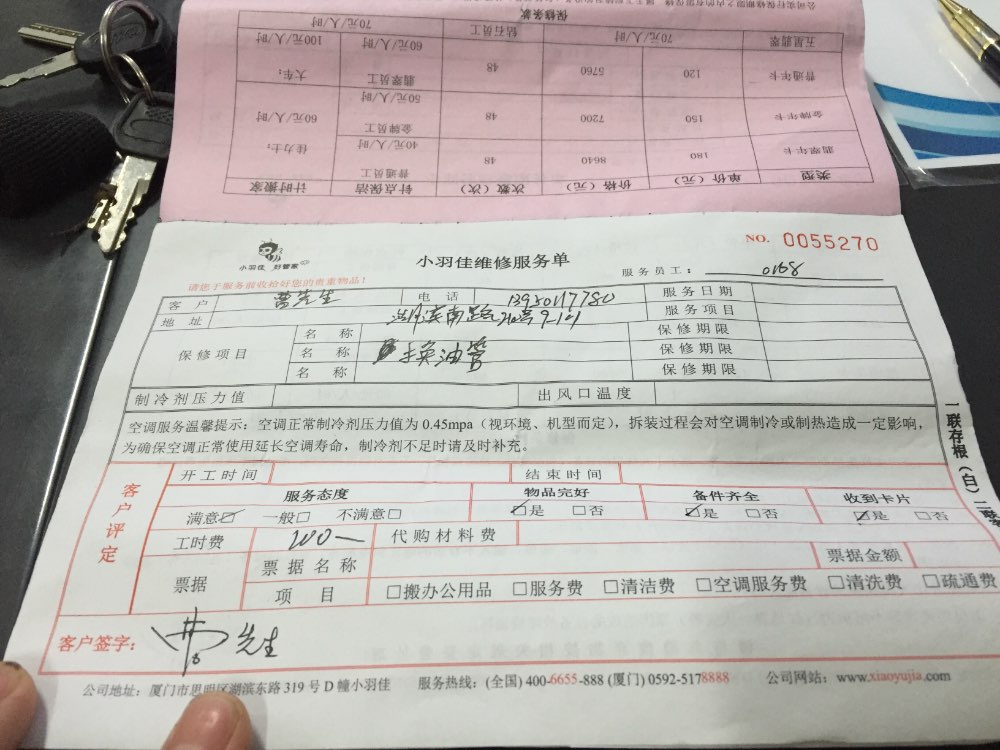 公司实行保修期
保修条款
五星翡翠 70元/人/时 钻石员工 70元/人/时
普通年卡 120 5760 48 翡翠员工 60元/人/时 大车： 100元/人/时
金牌年卡 150 7200 48 金牌员工 50元/人/时 60元/人/时
翡翠年卡 180 8640 48 普通员工 40元/人/时 佳力士：
类型 单价（元） 价格（元） 次数（次） 针点保洁 计时搬家
小羽佳 好管家
小羽佳维修服务单
NO. 0055270
服务员工： 0168
请您于服务前收拾好您的贵重物品！
客户 曹先生 电话 服务日期
地址 服务项目
保修项目 名称 保修期限
名称 换油管 保修期限
名称 保修期限
制冷剂压力值 出风口温度
空调服务温馨提示：空调正常制冷剂压力值为 0.45mpa（视环境、机型而定），拆装过程会对空调制冷或制热造成一定影响，
为确保空调正常使用延长空调寿命，制冷剂不足时请及时补充。
一联存根（白）二联
客户评定
开工时间 结束时间
服务态度 物品完好 备件齐全 收到卡片
满意☑ 一般□ 不满意□ ☑是 □否 ☑是 □否 ☑是 □否
工时费 200— 代购材料费
票据 票据名称 票据金额
项目 □搬办公用品 □服务费 □清洁费 □空调服务费 □清洗费 □疏通费
客户签字： 曹先生
公司地址：厦门市思明区湖滨东路 319 号 D 幢小羽佳 服务热线：(全国) 400-6655-888 (厦门) 0592-5178888 公司网站：www.xiaoyujia.com